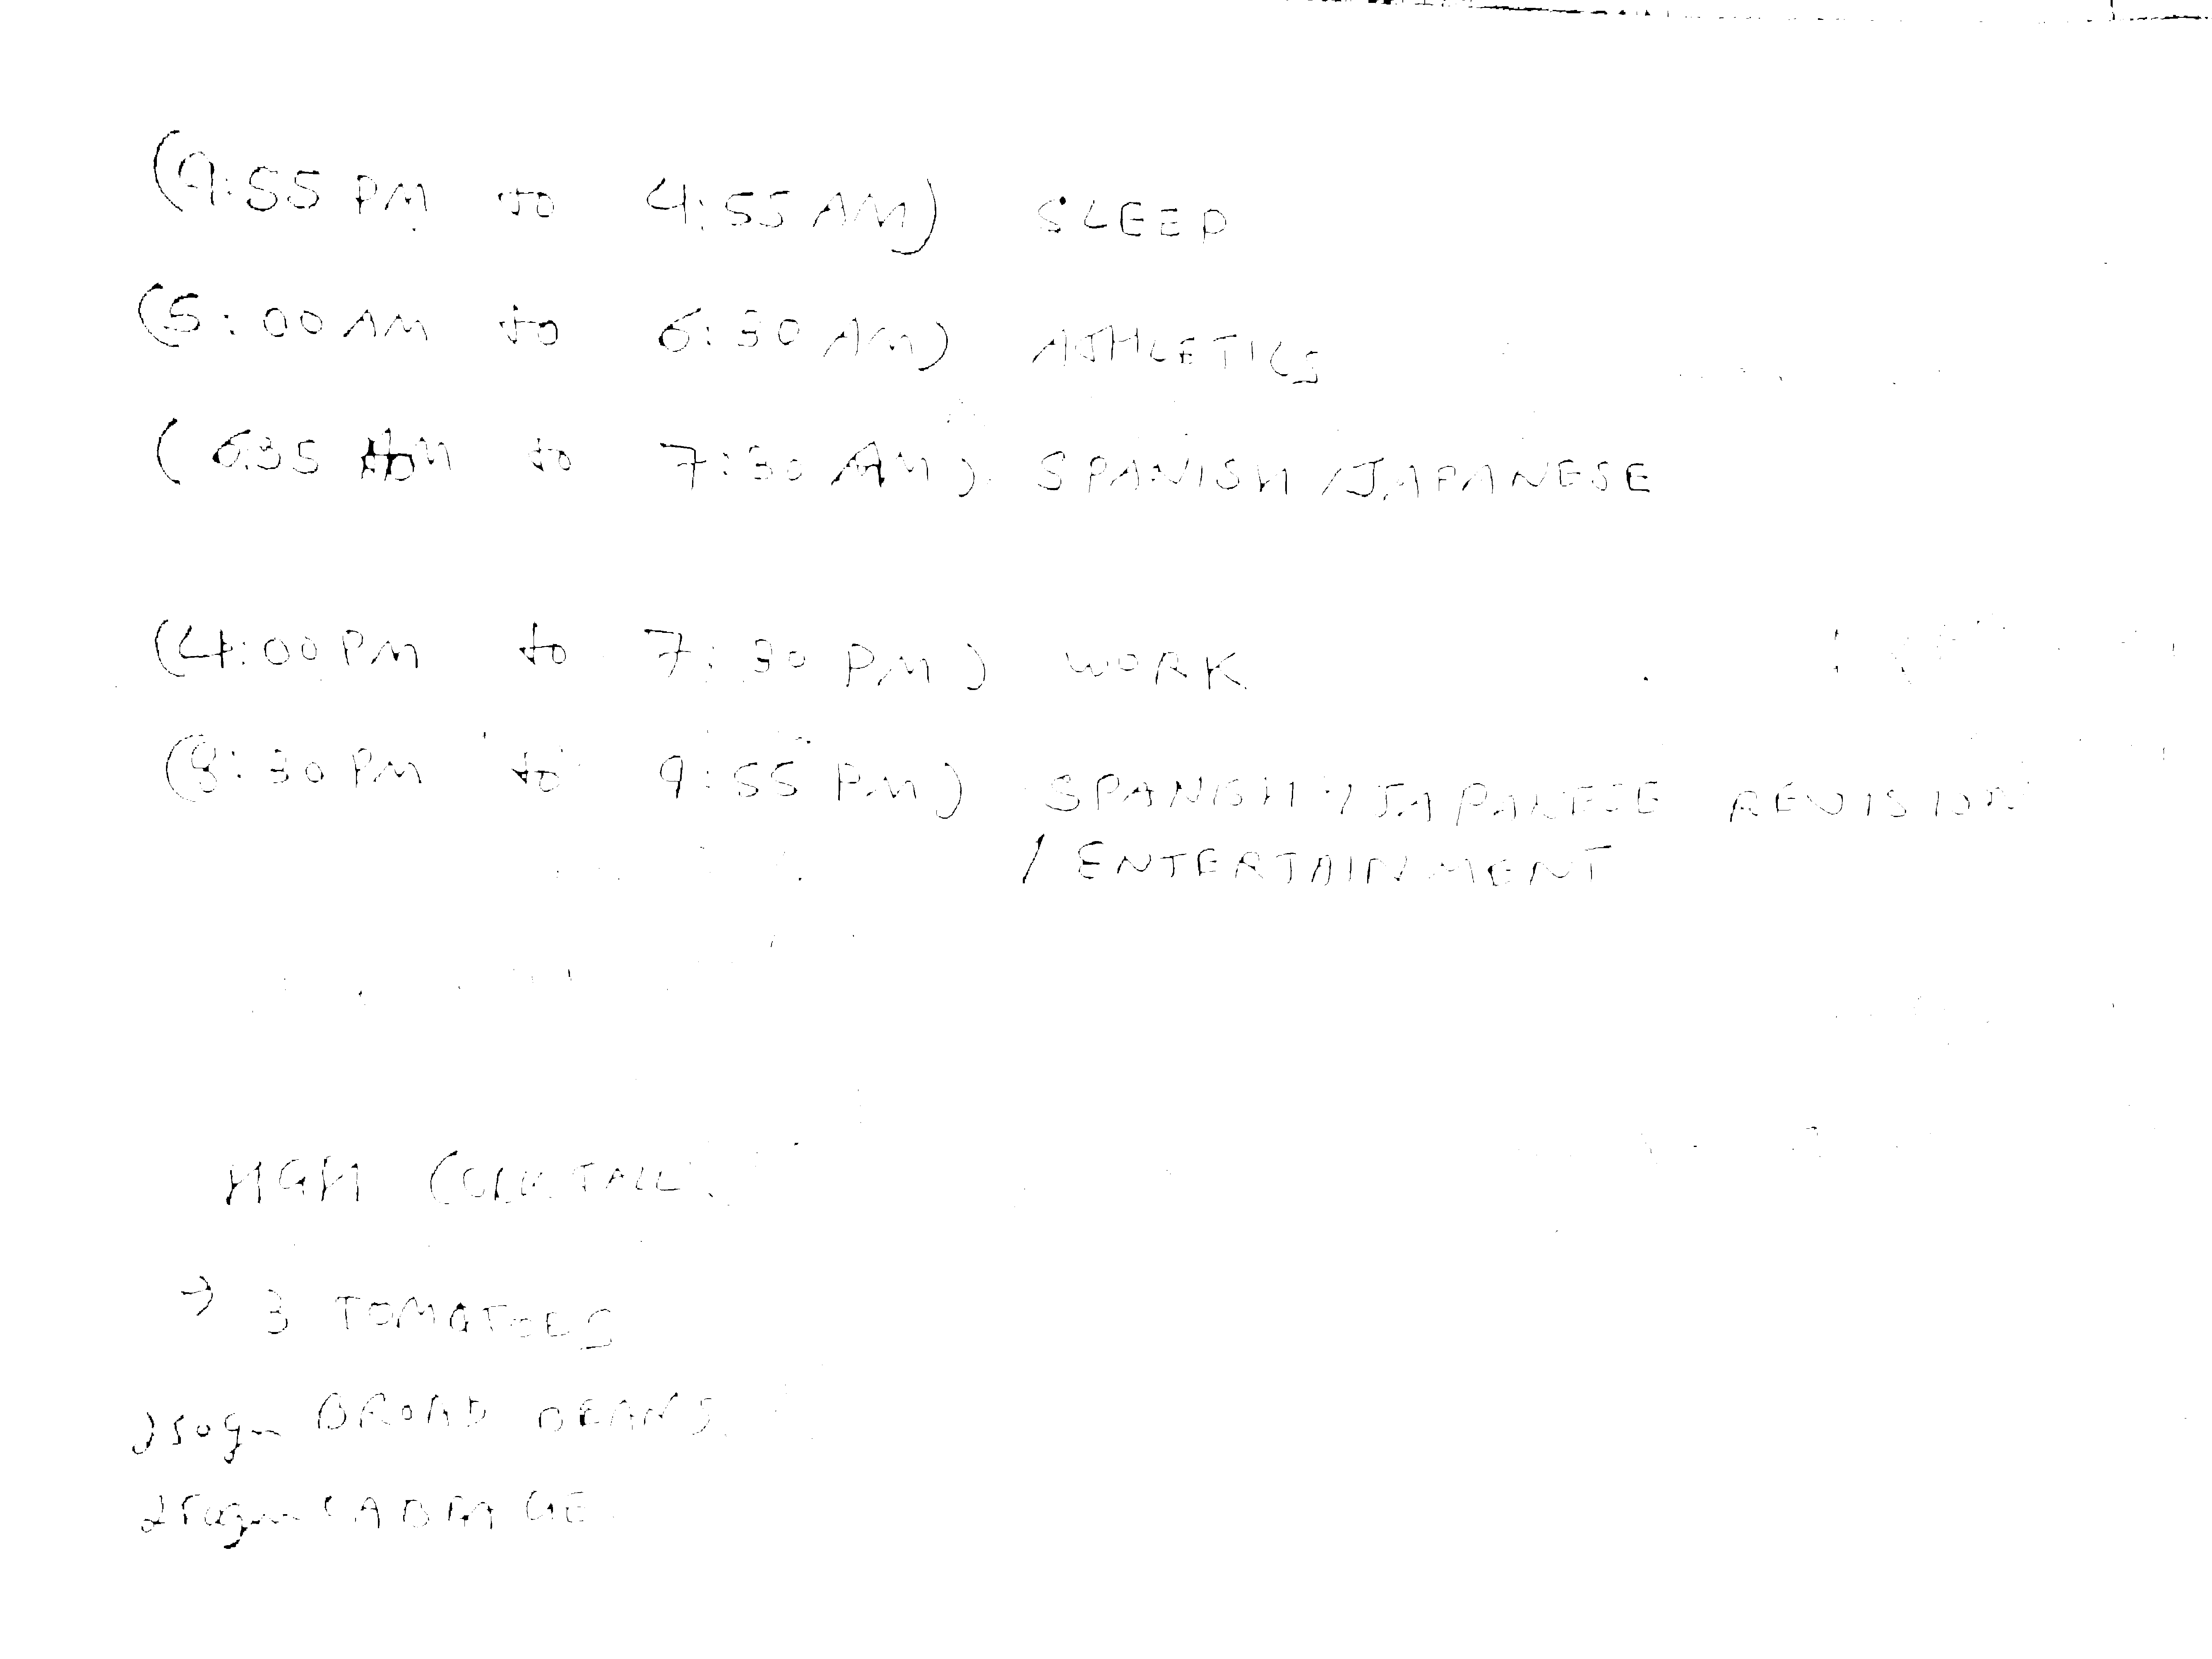 (9:55 PM to 4:55 AM) SLEEP
(5:00 AM to 6:30 AM) ATHLETICS
(6:35 AM to 7:30 AM) SPANISH / JAPANESE
(4:00 PM to 7:30 PM) WORK
(8:30 PM to 9:55 PM) SPANISH / JAPANESE REVISION
/ ENTERTAINMENT
HGH COCKTAIL
→ 3 TOMATOES
250gm BROAD BEANS
250gm CABBAGE